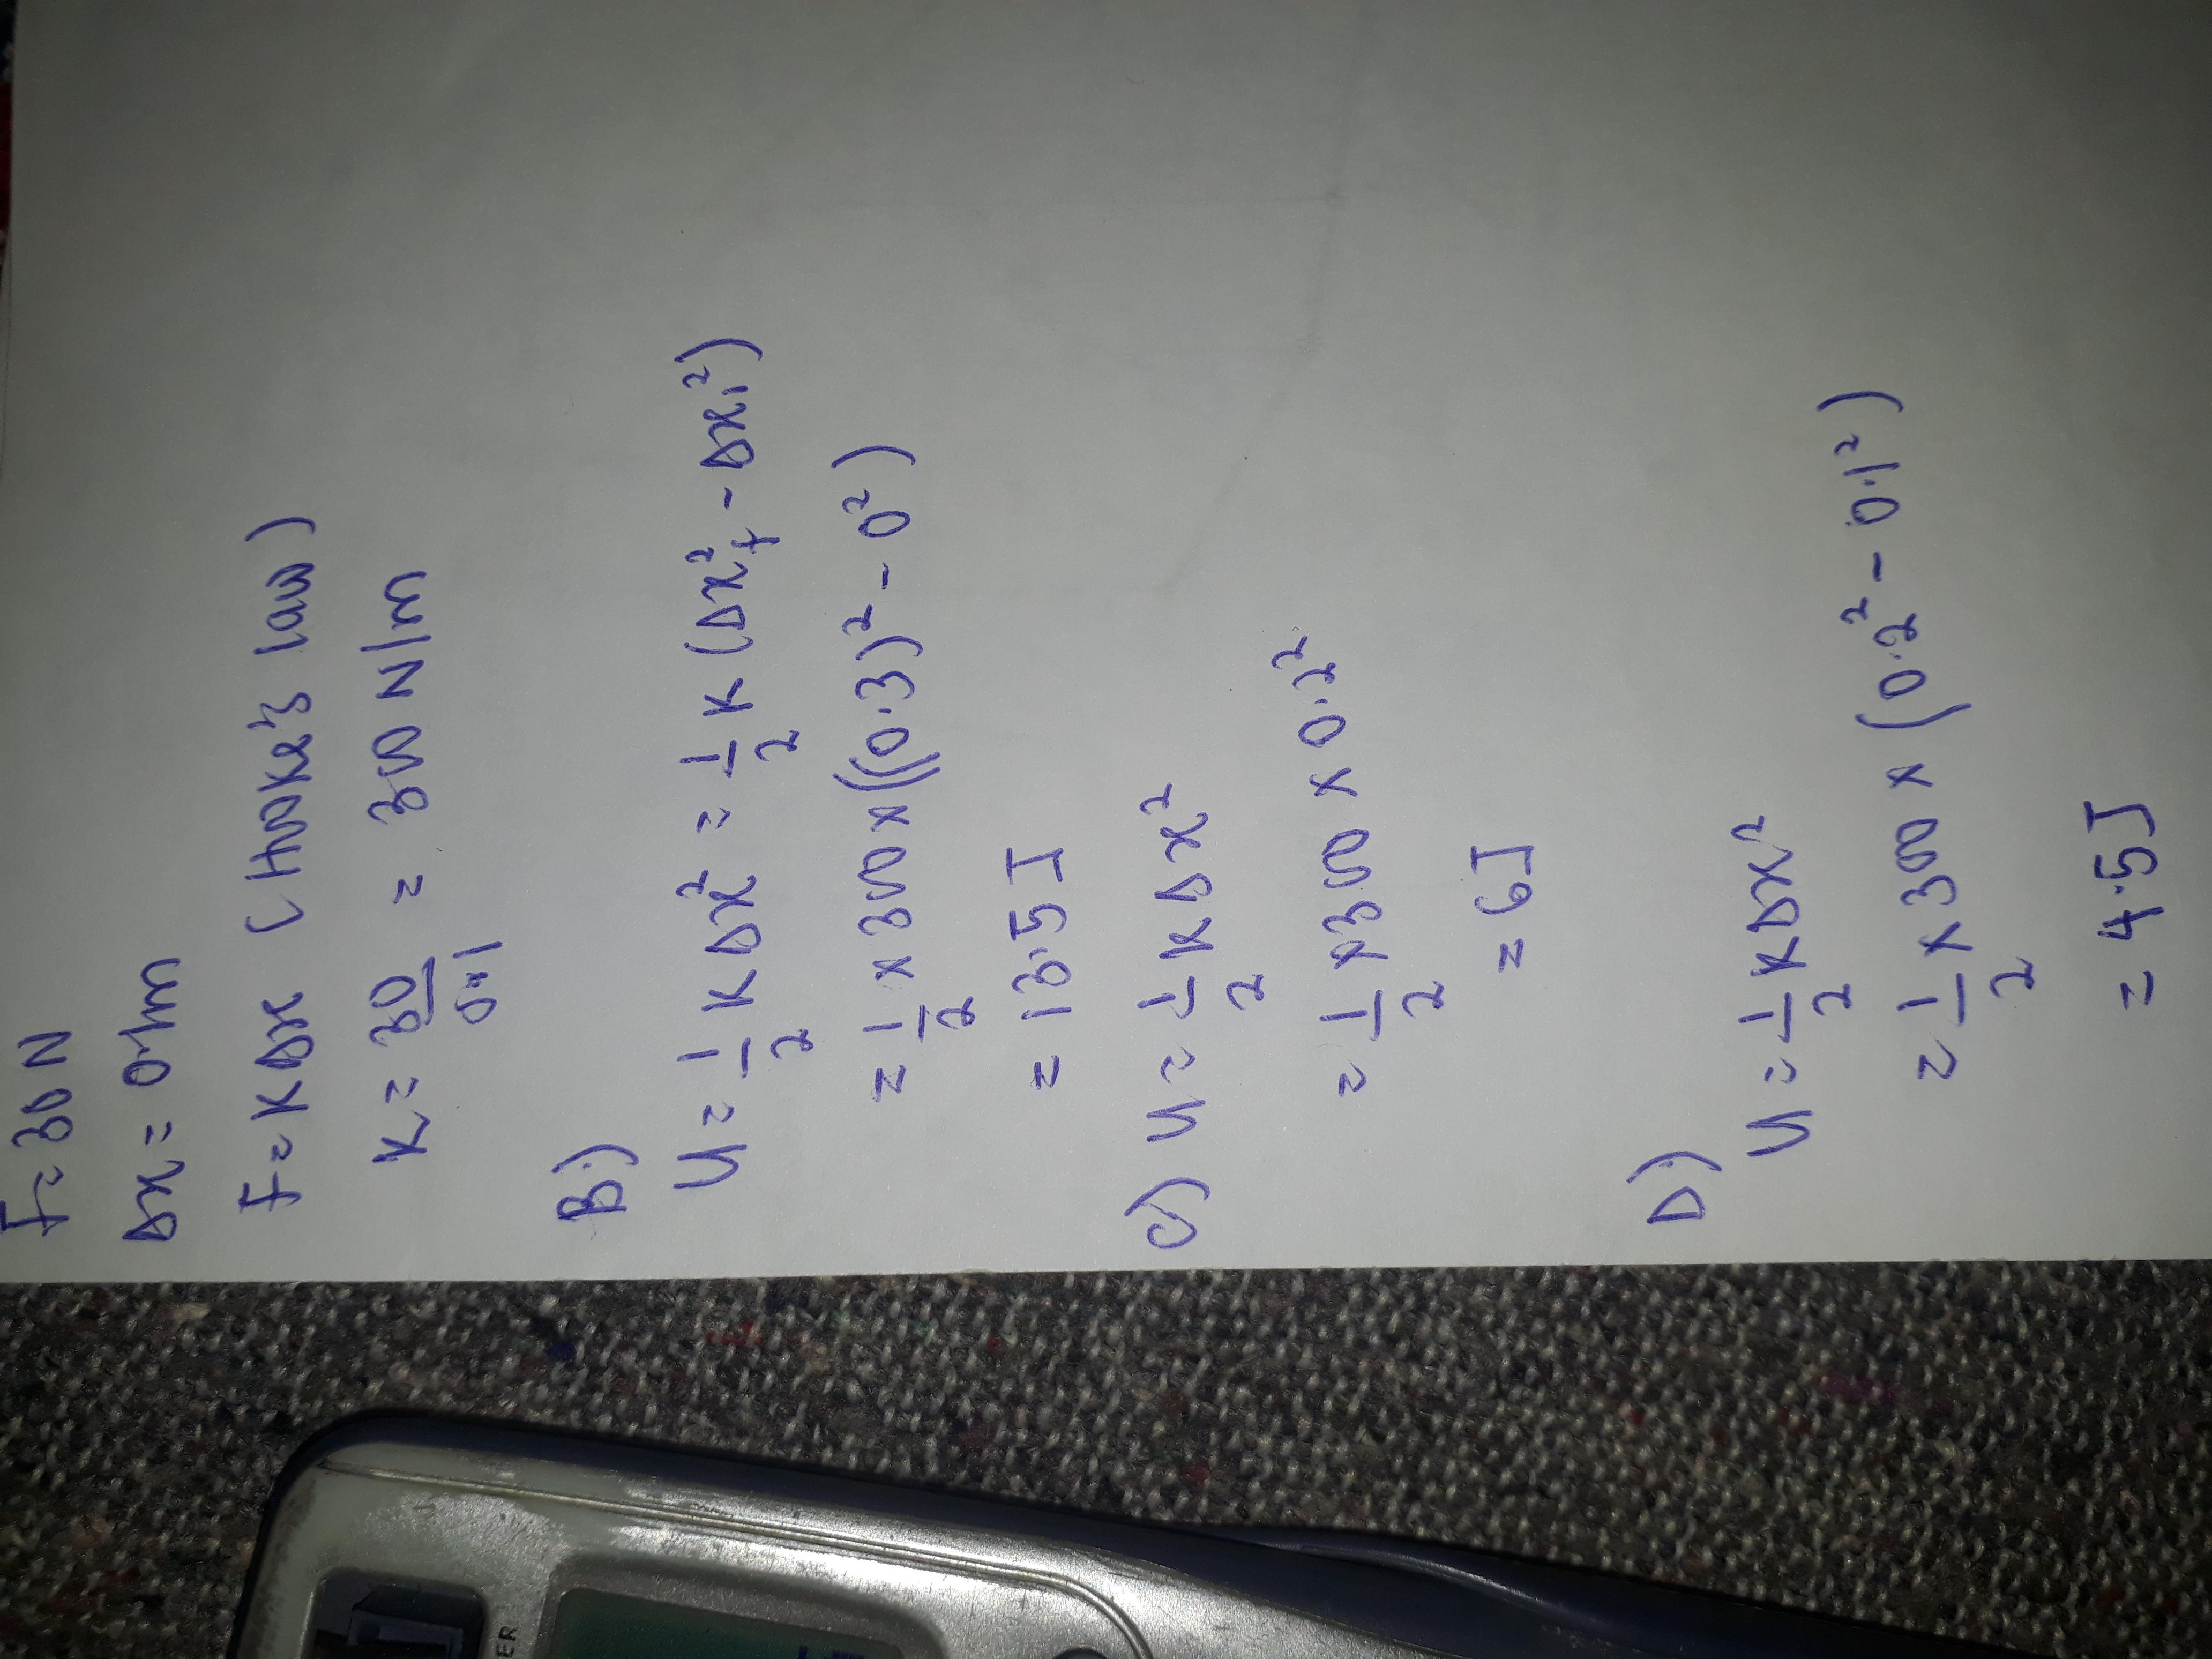 F = 30 N
Δx = 0.1m
F = KΔx (Hooke's law)
K = 30/0.1 = 300 N/m
B.)
U = 1/2 K Δx² = 1/2 K (Δx²f - Δxi²)
= 1/2 × 300 × ((0.3)² - 0²)
= 13.5 J
C.) U = 1/2 K Δx²
= 1/2 × 300 × 0.2²
= 6J
D.)
U = 1/2 K Δx²
= 1/2 × 300 × (0.2² - 0.1²)
= 4.5J
ER